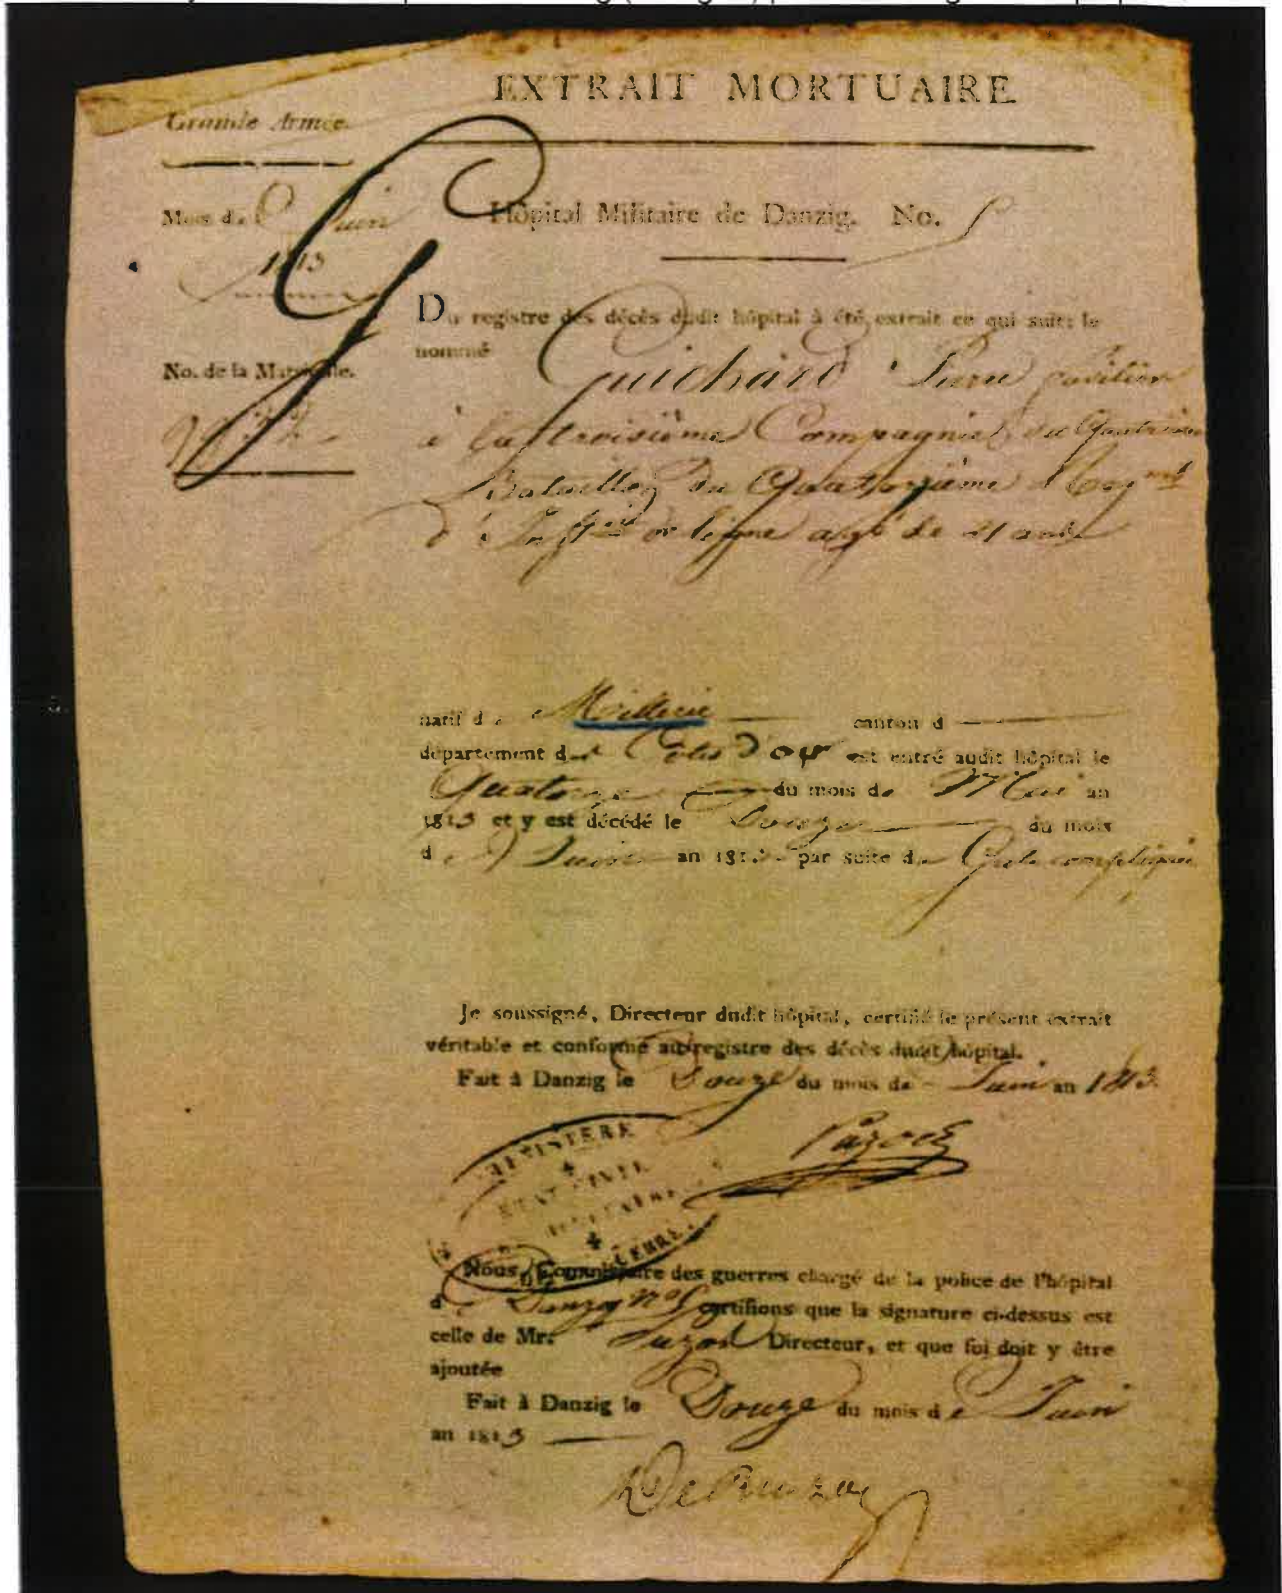 EXTRAIT MORTUAIRE
Grande Armée.
Mois de Juin
1813
Hôpital Militaire de Danzig. No.
Du registre des décès dudit hôpital à été extrait ce qui suit: le
nommé
Guichard Pierre fusilier
No. de la Matricule.
à la troisième Compagnie du Quatrième
Bataillon du Quatorzième Regmt
d'Inftrie de ligne agé de 21 ans
natif de canton d
département de Côte d'or est entré audit hôpital le
Quatorze du mois de Mai an
1813 et y est décédé le Douze du mois
de Juin an 181 par suite de
Je soussigné, Directeur dudit hôpital, certifie le présent extrait
véritable et conforme au registre des décès dudit hôpital.
Fait à Danzig le Douze du mois de Juin an 1813.
MINISTERE
ETAT CIVIL
MILITAIRE
GUERRE.
Nous, Commissaire des guerres chargé de la police de l'hôpital
de Danzig no certifions que la signature ci-dessus est
celle de Mr. Directeur, et que foi doit y être
ajoutée
Fait à Danzig le Douze du mois de Juin
an 1813